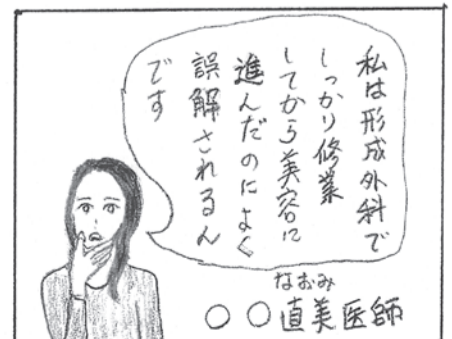 私は形成外科で
しっかり修業
してから美容に
進んだのによく
誤解されるん
です
なおみ
○○直美医師